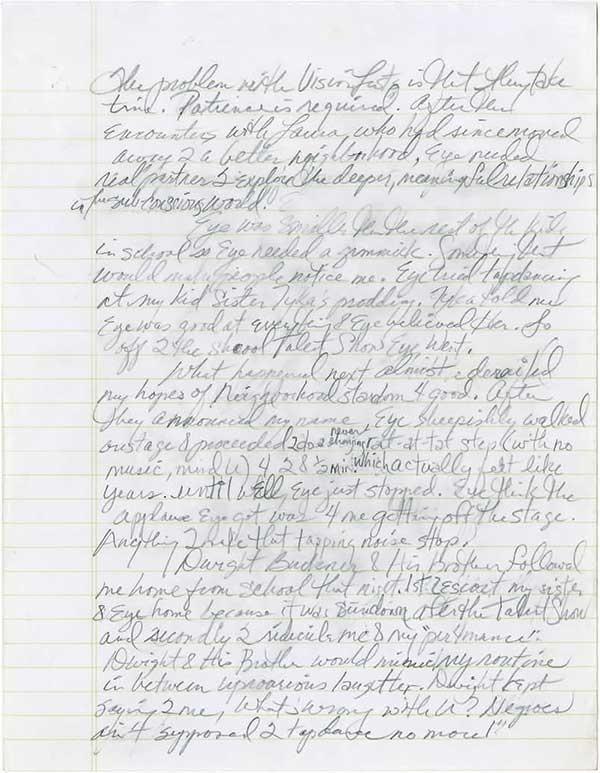 The problem with Vision Lists is that they take
time. Patience is required. After the
encounters with Laura, who had since moved
away 2 a better neighborhood, Eye needed
real partner 2 explore the deeper, meaningful relationships
in the sub-conscious world.
Eye was smaller than the rest of the kids
in school so Eye needed a gimmick. Something that
would make people notice me. Eye tried tapdancing
at my kid Sister Tyka's prodding. Tyka told me
Eye was good at everything & Eye believed her. So
off 2 the school Talent Show Eye went.
What happened next almost derailed
my hopes of Neighborhood stardom 4 good. After
they announced my name, Eye sheepishly walked
onstage & proceeded 2 do a never changing rat-at-tat step (with no
music, mind U) 4 28 1/2 min. which actually felt like
years. until well, Eye just stopped. Eye think the
applause Eye got was 4 me getting off the stage.
Anything 2 make that tapping noise stop.
Dwight Buckner & His Brother followed
me home from school that night. 1st 2 escort my sister
& Eye home because it was sundown after the Talent Show
and secondly 2 ridicule me & my "performance".
Dwight & His Brother would mimic my routine
in between uproarious laughter. Dwight kept
saying 2 me, "What's wrong with U? Negroes
ain't supposed 2 tapdance no more!"